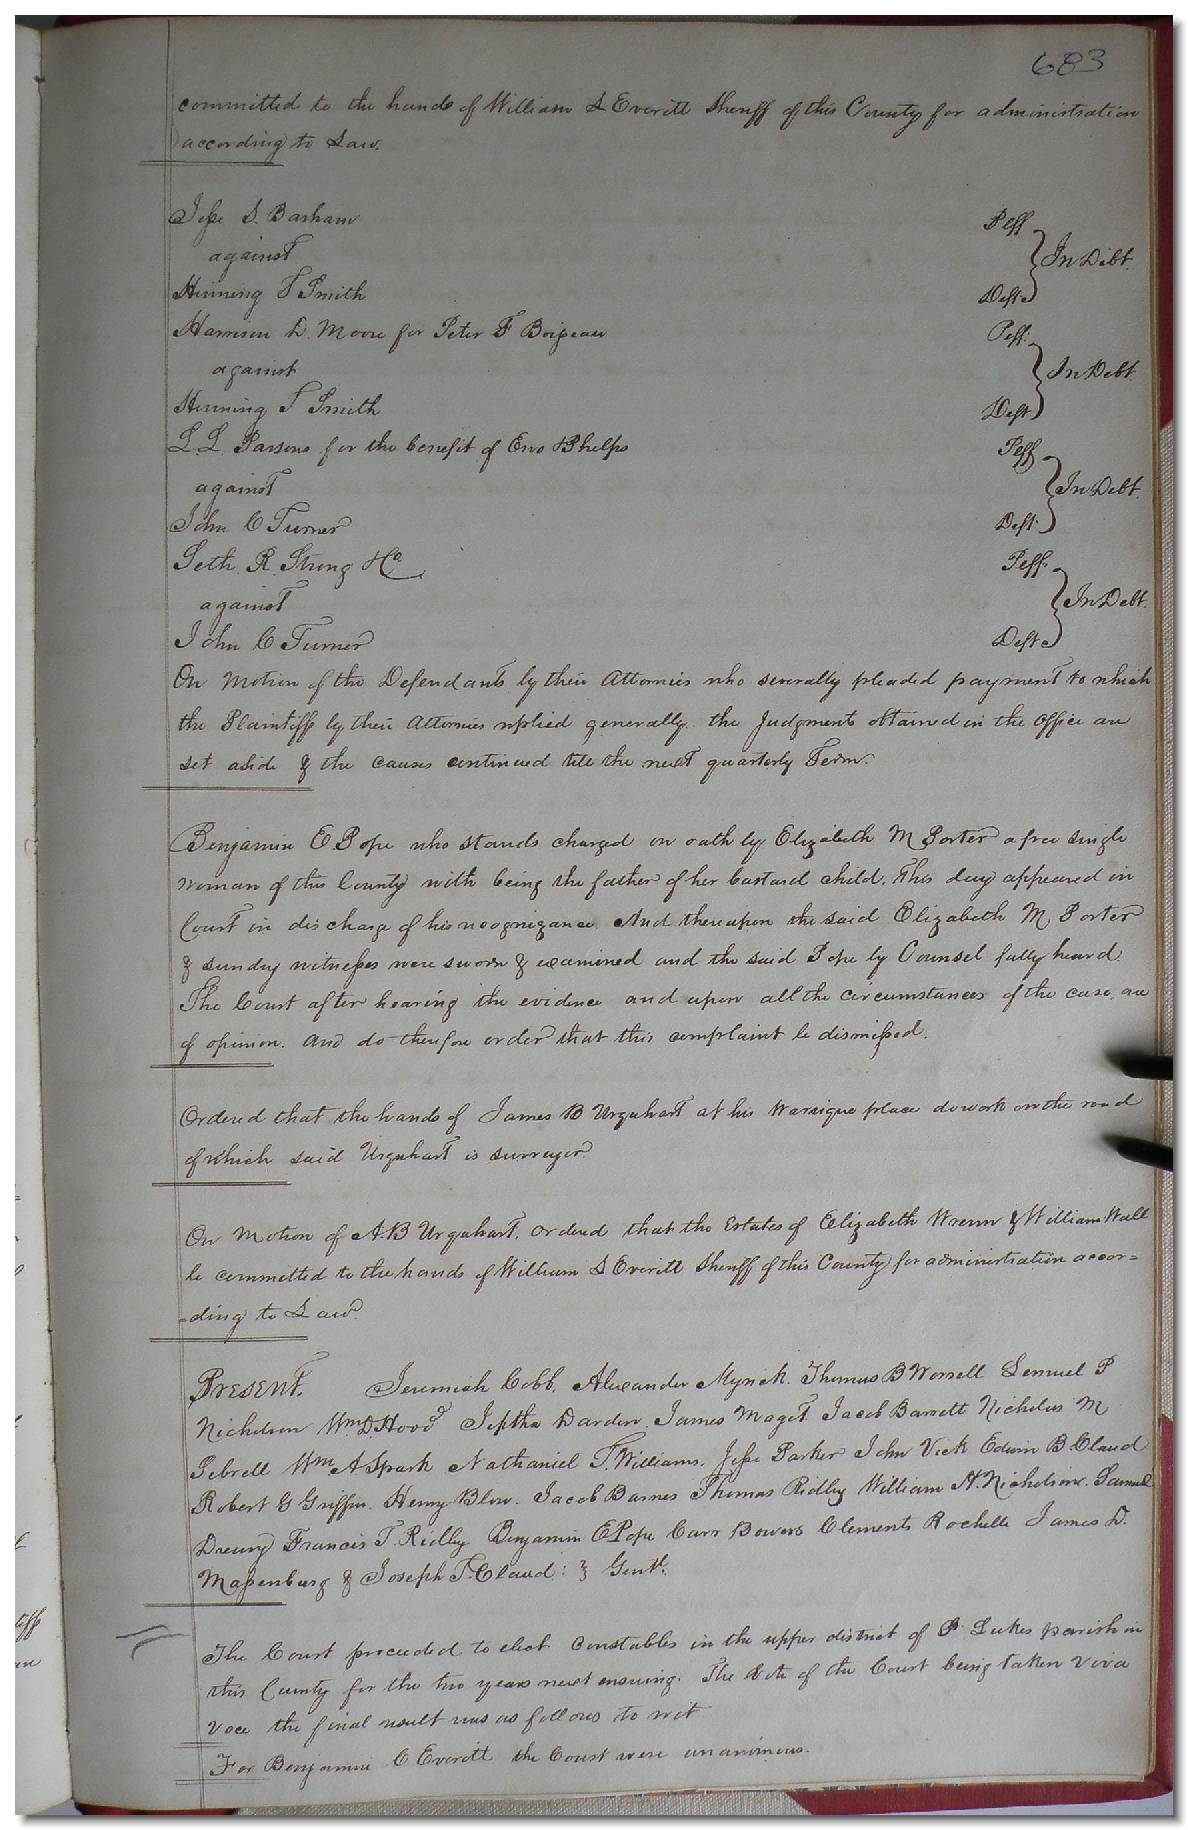 683
committed to the hands of William S Everitt Sheriff of this County for administration
according to Law.
Jesse S. Barham Plff
against In Debt.
Henning T Smith Deft
Harrison D. Moore for Peter F Boisseau Plff.
against In Debt
Henning T Smith Deft
L. L. Parsons for the benefit of Eno & Phelps Plff
against In Debt.
John C Turner Deft.
Seth R. Strong & Co. Plff.
against In Debt.
John C Turner Deft
On Motion of the Defendants by their Attornies who severally pleaded payment to which
the Plaintiffs by their Attornies replied generally. the Judgments obtained in the office are
set aside & the causes continued till the next quarterly Term.
Benjamin E Pope who stands charged on oath by Elizabeth M Porter a free single
woman of this County with being the father of her bastard child. This day appeared in
Court in discharge of his recognizance. And thereupon the said Elizabeth M Porter
& sundry witnesses were sworn & examined and the said Pope by Counsel fully heard.
The Court after hearing the evidence and upon all the circumstances of the case, are
of opinion. and do therefore order that this complaint be dismissed.
Ordered that the hands of James B Urquhart at his place do work on the road
of which said Urquhart is surveyor.
On Motion of A. B Urquhart. ordered that the Estates of Elizabeth Wrenn & William Wall
be committed to the hands of William S Everitt Sheriff of this County for administration accor=
=ding to Law.
Present. Jeremiah Cobb, Alexander Myrick. Thomas B Worrell Lemuel P
Nicholson Wm D Hood Jeptha Darden. James Maget. Jacob Barrett Nicholas M
Sebrell Wm A Spark Nathaniel T. Williams. Jesse Parker John Vick Edwin B Claud
Robert G Griffin. Henry Blow. Jacob Barnes Thomas Ridley William A. Nicholson. Samuel
Drewry Francis T. Ridley Benjamin E Pope Carr Bowers Clements Rochelle James D.
Massenburg & Joseph T. Claud: } Gentl.
The Court proceeded to elect Constables in the upper district of St Lukes parish in
this County for the two years next ensuing. The Vote of the Court being taken Viva
Voce the final result was as follows to wit
For Benjamin C Everitt the Court were unanimous.